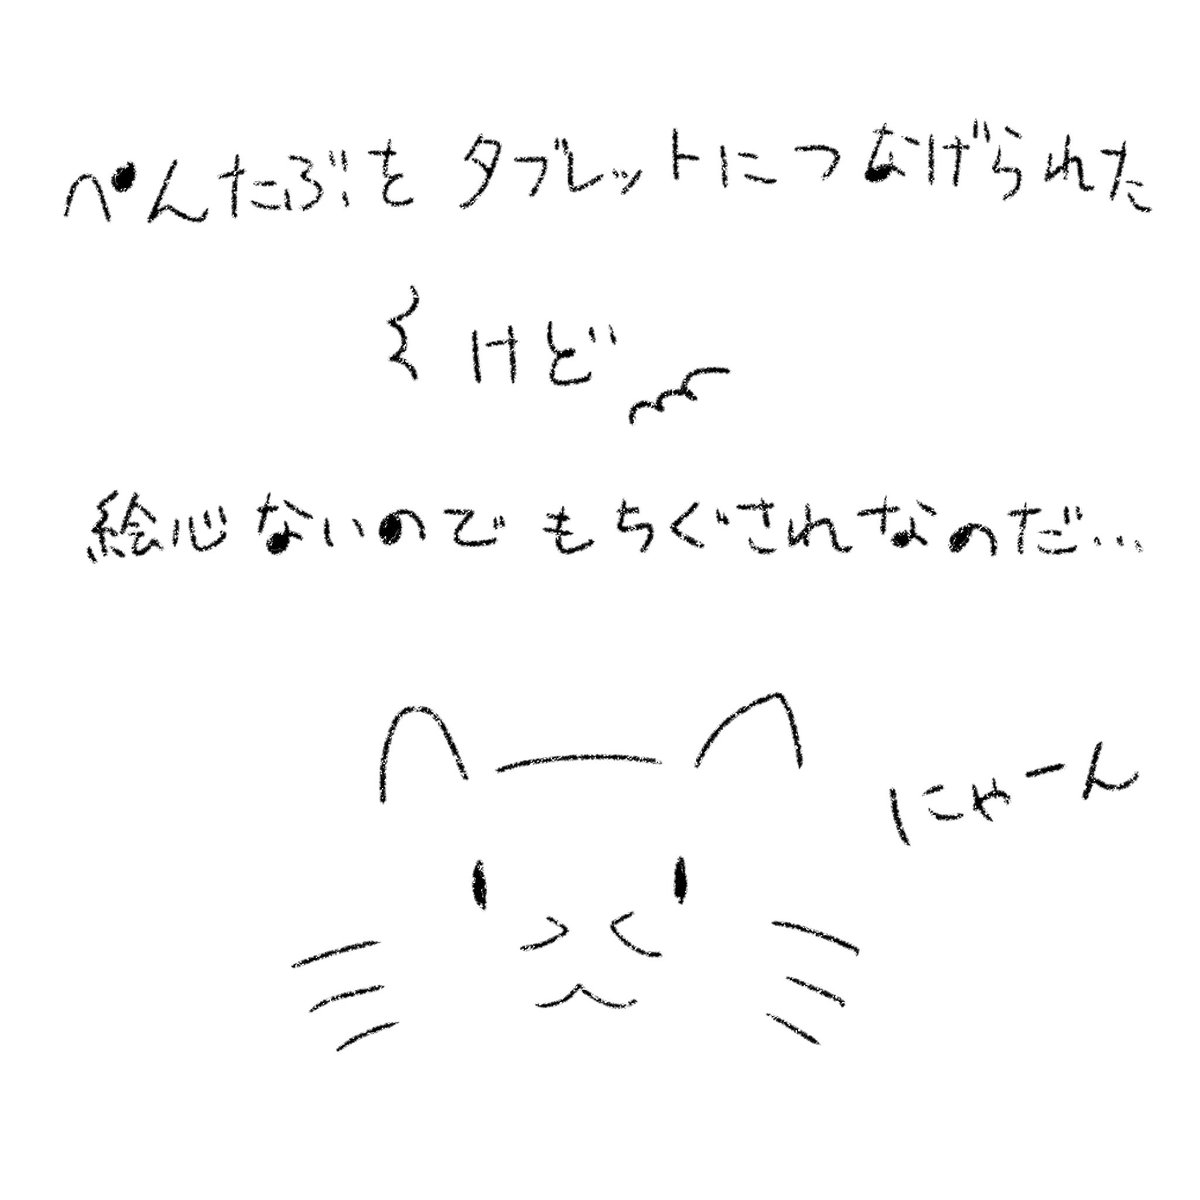 ぺんたぶをタブレットにつなげられた
けど
絵心ないのでもちぐされなのだ…
にゃーん